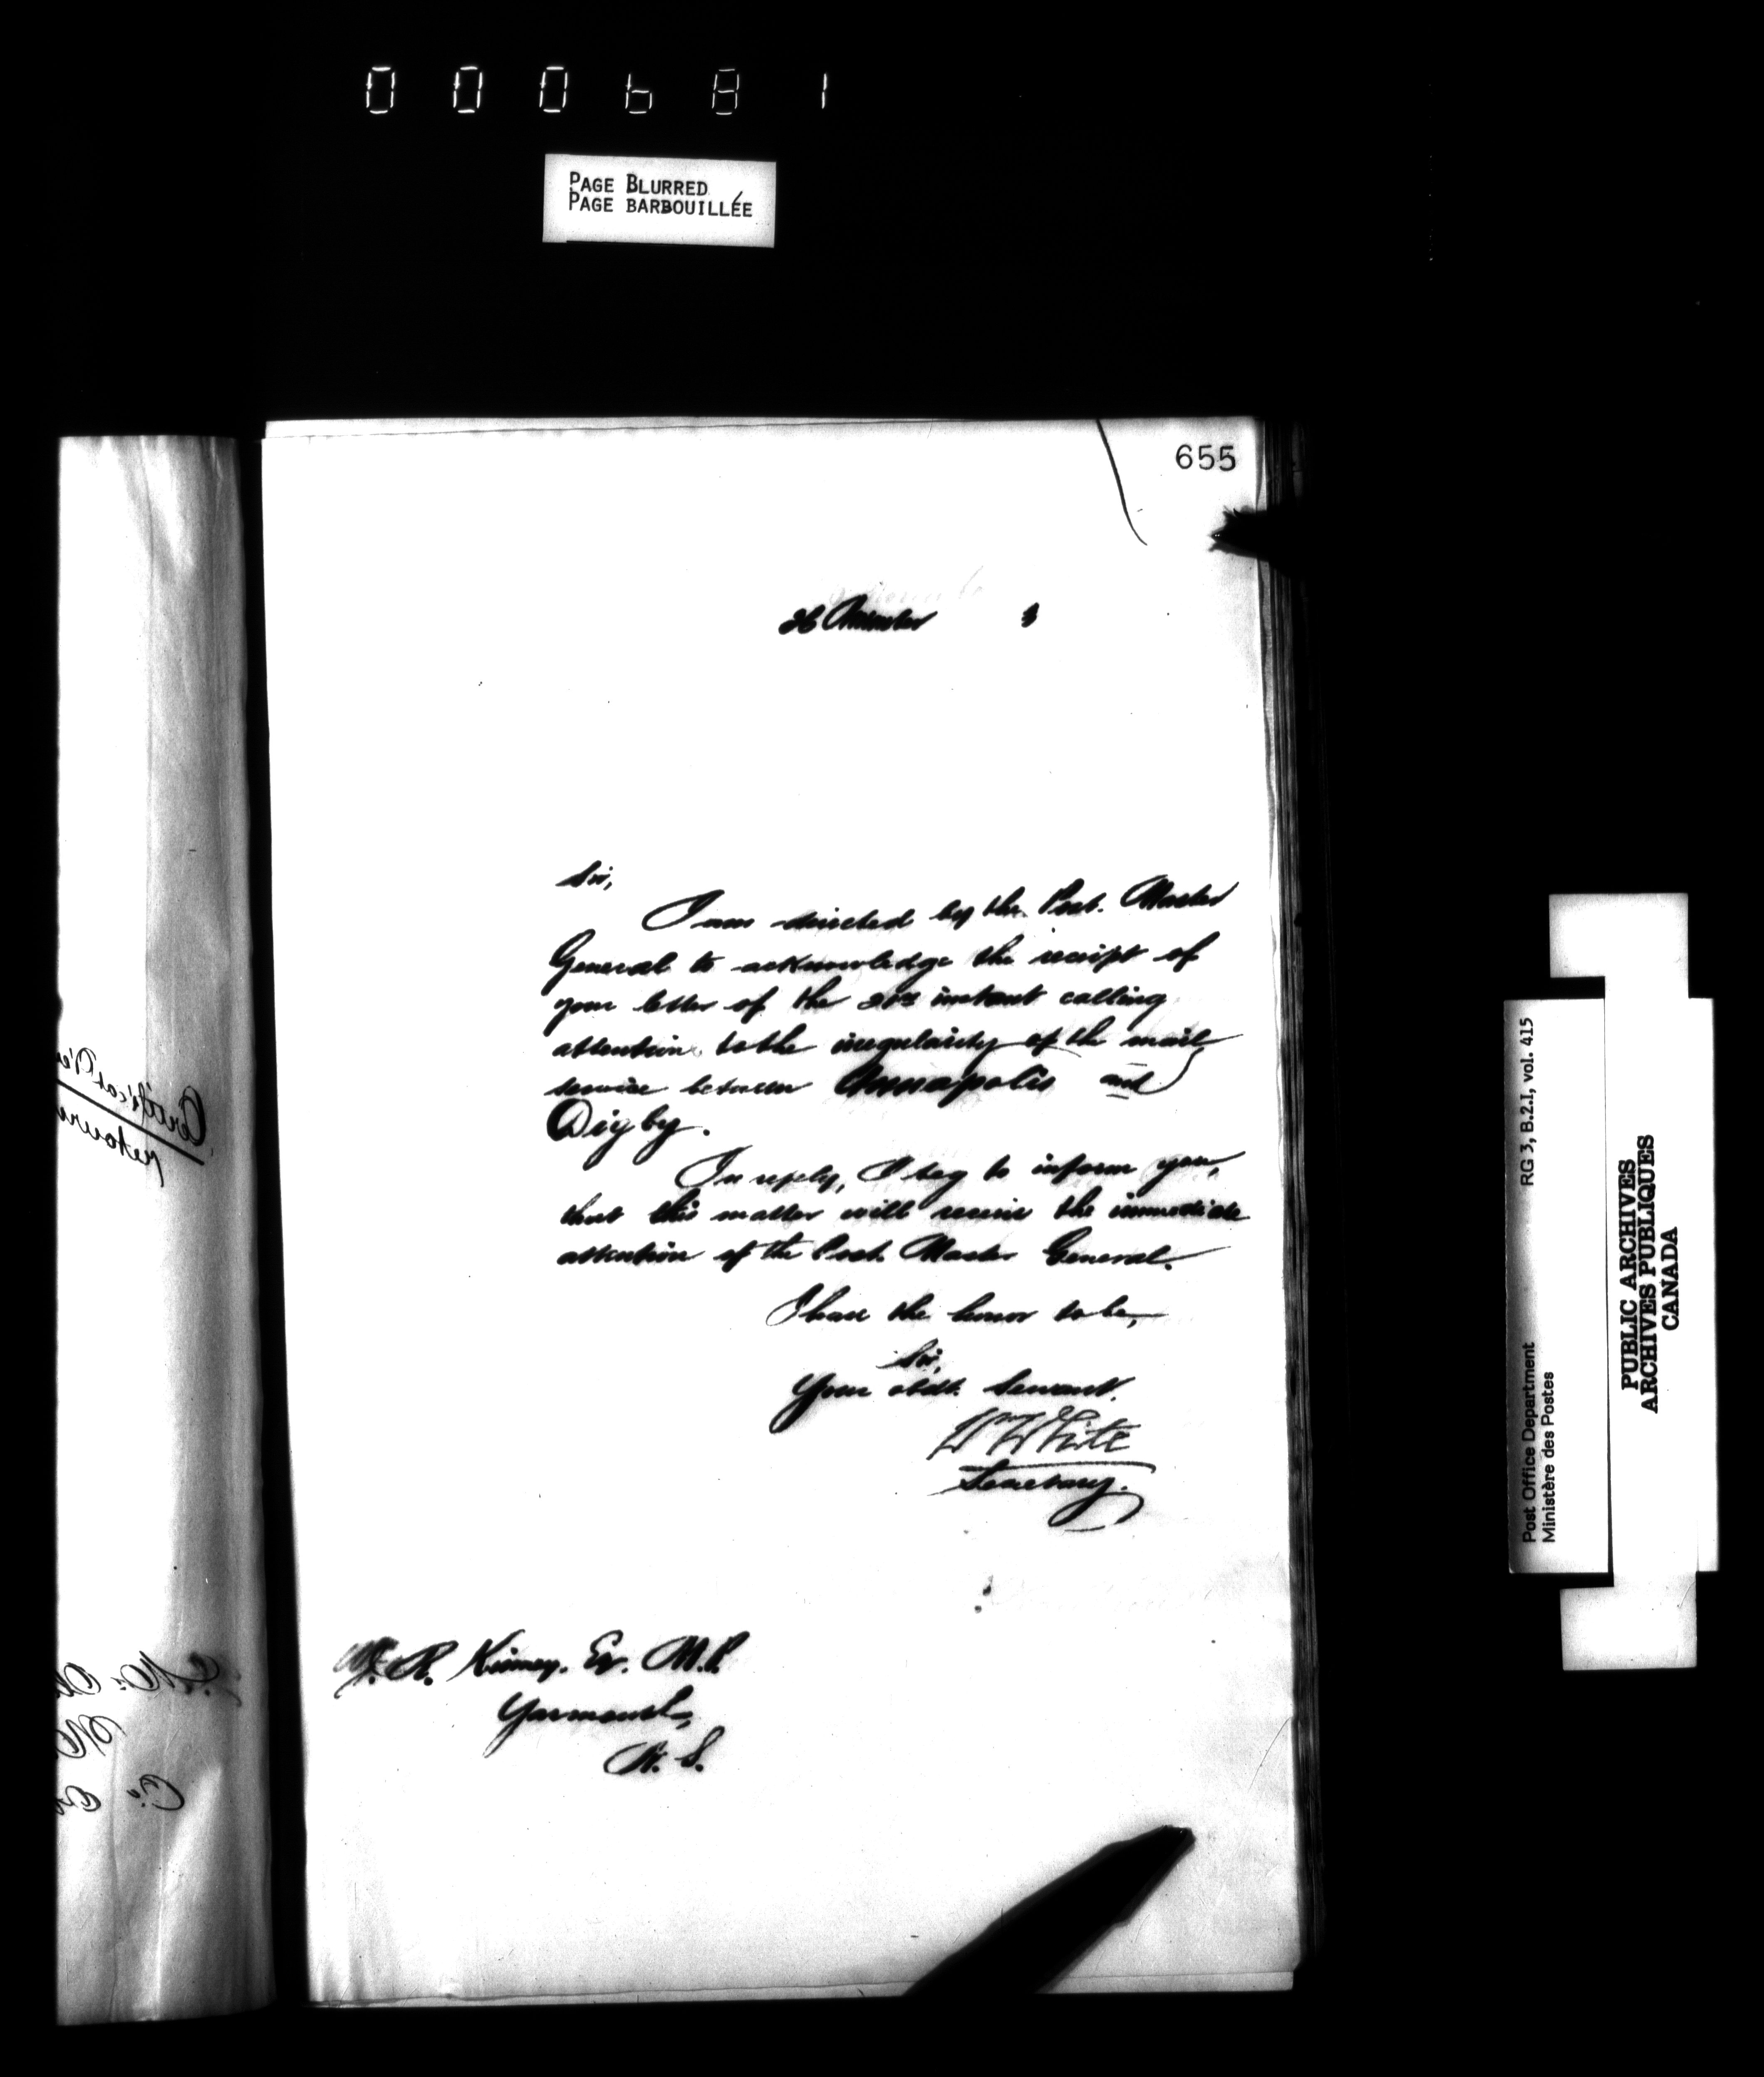 000681
PAGE BLURRED
PAGE BARBOUILLÉE
655
26 November 3
Sir,
I am directed by the Post. Master
General to acknowledge the receipt of
your letter of the instant calling
attention to the irregularity of the mail
service between Annapolis and
Digby.
In reply, I beg to inform you,
that this matter will receive the immediate
attention of the Post. Master General.
I have the honor to be,
Sir,
Your obdt. Servant.
W White
Secretary.
J. R. Kinney, Esq. M.P.
Yarmouth,
N. S.
Certificat
retourné
Post Office Department RG 3, B.2.I, vol. 415
Ministère des Postes
PUBLIC ARCHIVES
ARCHIVES PUBLIQUES
CANADA